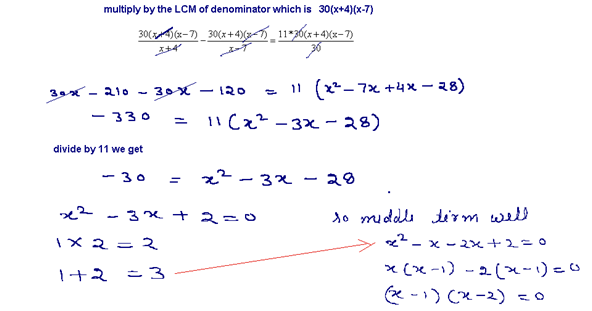 multiply by the LCM of denominator which is 30(x+4)(x-7)
30(x+4)(x-7)/x+4 - 30(x+4)(x-7)/x-7 = 11*30(x+4)(x-7)/30
30x - 210 - 30x - 120 = 11 (x² - 7x + 4x - 28)
- 330 = 11(x² - 3x - 28)
divide by 11 we get
- 30 = x² - 3x - 28
x² - 3x + 2 = 0
1 x 2 = 2
1 + 2 = 3
so middle term well
x² - x - 2x + 2 = 0
x(x-1) - 2(x-1) = 0
(x-1) (x-2) = 0